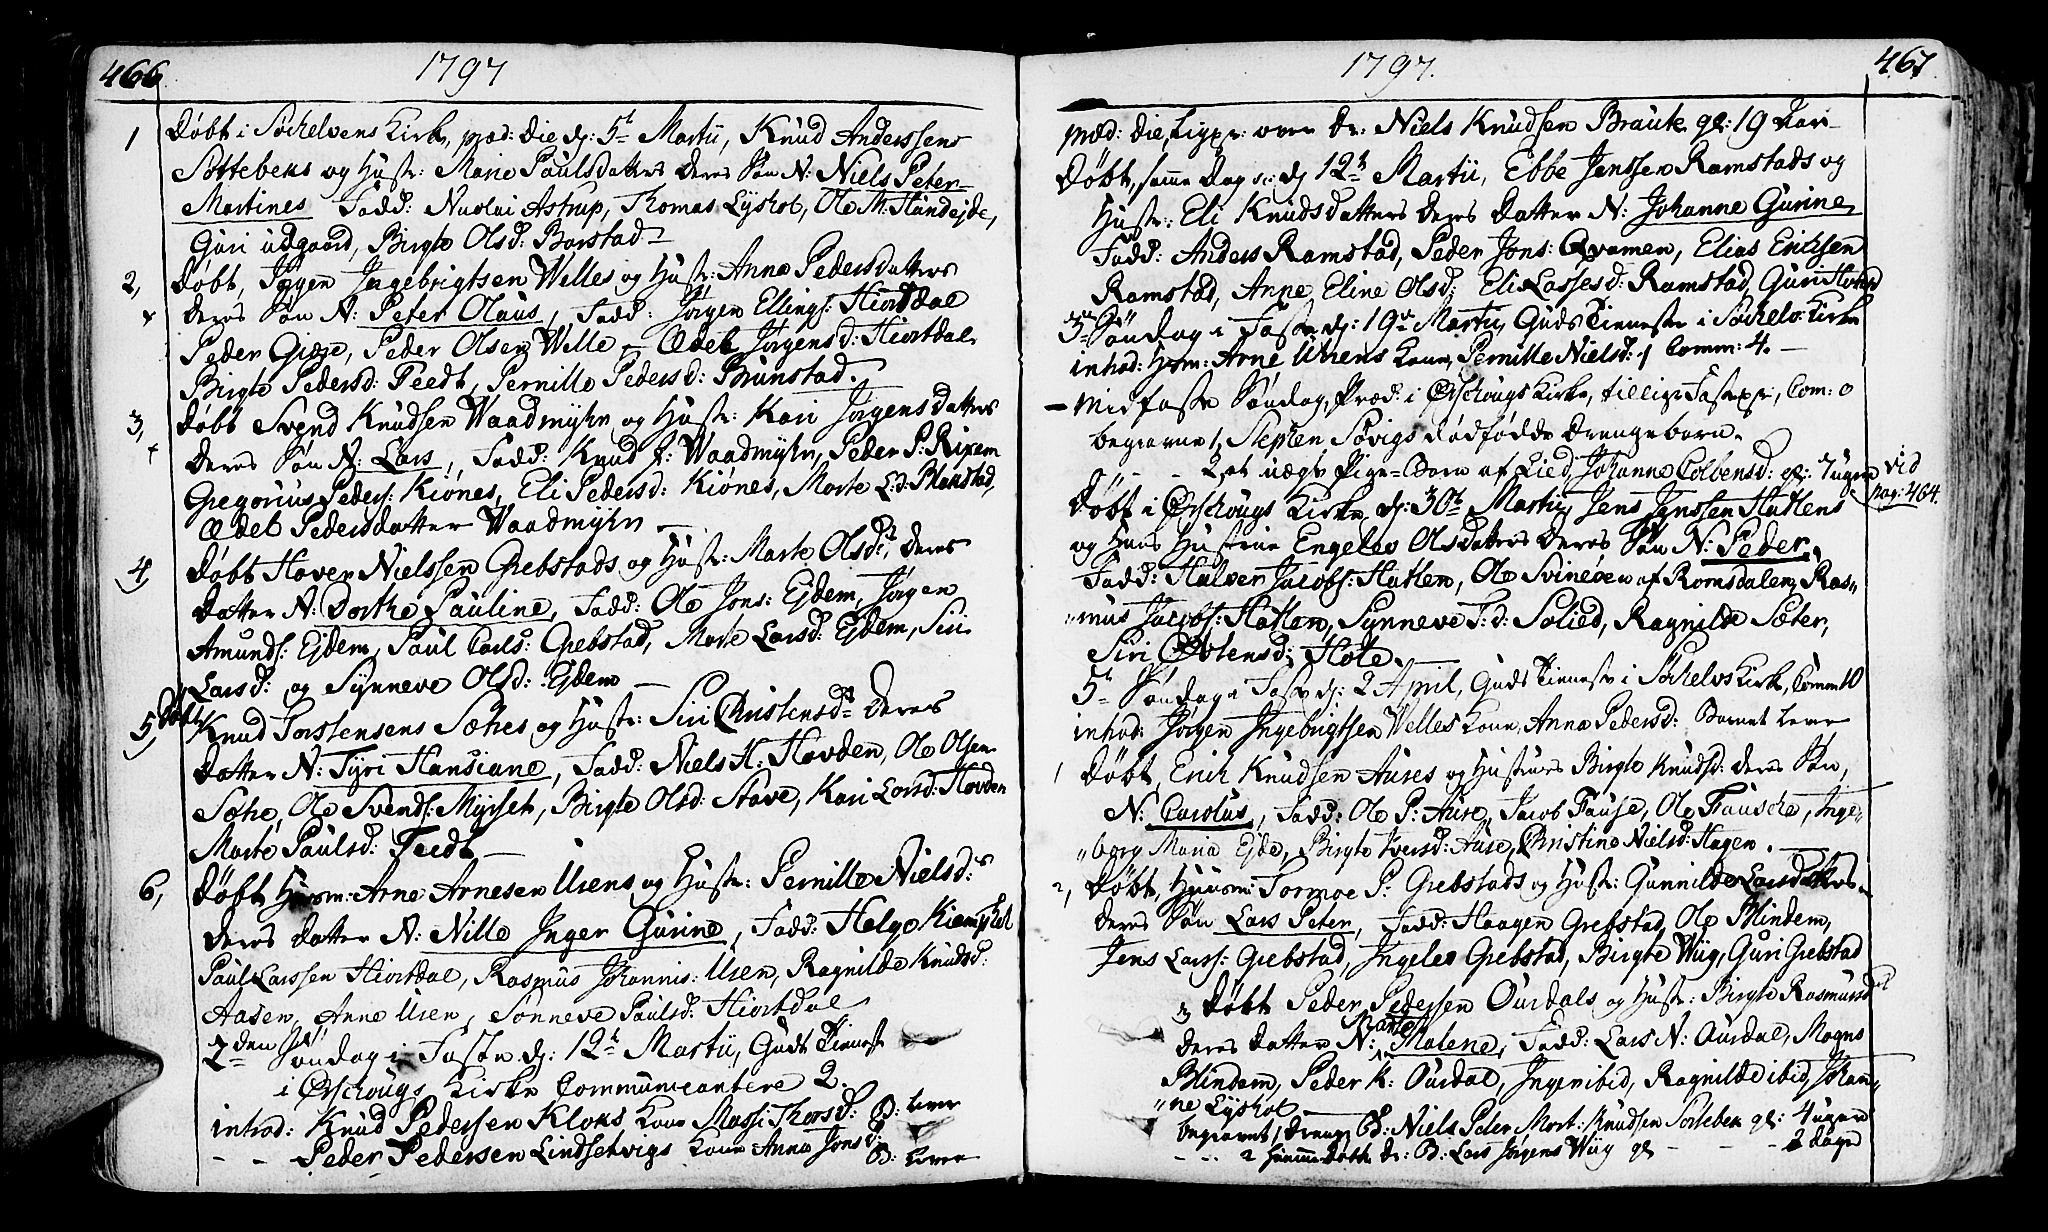 466
1797
1 Døbt i Søchelvens Kirke, præd: die dj: 5t Martii, Knud Anderssens
Sottebeks og Hustr: Marie Paulsdatters deres Søn N: Niels Peter
Martines Fadd: Nicolai Astrup, Thomas Lysholt, Ole M: Handejde,
Guri udgaard, Birgte Olsd: Barstad
2, Døbt, Jørgen Ingebrigtsen Welles og Hustr: Anne Pedersdatters
deres Søn N: Peter Olaus, Fadd: Jørgen Ellings: Hiortdal
Peder Giære, Peder Olsen Welle, Ædel Jørgensd: Hiortdal
Birgte Pedersd: Feedt, Pernille Pedersd: Brunstad.
3, Døbt Svend Knudsen Waadmyhr og Hustr: Kari Jørgensdatters
deres Søn N: Lars, Fadd: Knud J: Waadmyhr, Peder P: Rixem
Gregorius Peders: Kiönes, Eli Pedersd: Kiönes, Marte L:d: Blakstad,
Ædel Pedersdatter Waadmyhr
4, Døbt Haven Nielssen Grebstads og Hustr: Marte Olsdr, deres
datter N: Dorthe Pauline, Fadd: Ole Jons: Ejdem, Jørgen
Amunds: Ejdem, Paul Carls: Grebstad, Marte Larsd: Ejdem, Siri
Larsd: og Synneve Olsd: Ejdem
5, Døbt Knud Torstensens Sæhes og Hustr: Siri Christensdr deres
datter N: Tyri Hansiane, Fadd: Niels H: Hovden, Ole Olsen
Sæhe, Ole Svends: Myrset, Birgte Olsd: Stave, Kari Larsd: Hovden
Marte Paulsd: Feedt
6, Døbt Husm: Arne Arnesen Urens og Hustr: Pernille Nielsdrs
deres datter N: Nille Inger Gurine, Fadd: Helge Kiemphol
Paul Larssen Hiortdal, Rasmus Johannis: Uren, Ragnilde Knudsd:
Aasen, Anne Uren, Sønneve Paulsd: Hiortdal
2den Søndag i Faste dj: 12t Martii, Guds Tieneste
i Ørschougs Kirke Communicantere 2.
introd: Knud Pedersen Kloks Kone Massi Thorsd: B: lever
- - Peder Pedersen Lindsetvigs Kone Anne Jonsd: B: lever
1797.
467
præd: die, Ligpr: over Dr: Niels Knudsen Brautes gl: 19 Aar
Døbt, samme dag dj 12t Martii, Ebbe Jenssen Ramstads og
Hustr: Eli Knudsdatters deres datter N: Johanne Gurine
Fadd: Anders Ramstad, Peder Jons: Qvamen, Elias Erichsen
Ramstad, Anne Eline Olsd: Eli Lassesd: Ramstad, Guri
3die Søndag i Faste dj: 19de Martii, Guds Tieneste i Søchelv: Kirke
introd: Husm: Arne Urens Kone, Pernille Nielsd: Comm: 4.
Midfaste Søndag, Præd: i Ørschougs Kirke, tillige Fastepr:, Com: 0
begravne 1, Stephen Søvigs dødfødde drengebarn.
2 et uægte Pige-Barn af Lied, Johanne Colbensd: gl: 7 uger vid pag: 464.
Døbt i Ørschougs Kirke dj: 30t Martii, Jens Jenssen Hatlens
og hans Hustrue Engelev Olsdatters deres Søn N: Peder,
Fadd: Halver Jacobs: Hatlem, Ole Svinøen af Romsdalen, Ras„
„mus Jacobs: Hatlem, Synneve T:d: Solied, Ragnilde Sæter,
Siri Østensd: Hole.
5t Søndag i Faste dj: 2 April, Guds Tieneste i Søchelvs Kirke, Comm 10
introd: Jørgen Ingebrigtsen Welles Kone, Anne Pedersd: Barnet lever
1 Døbt, Erich Knudsen Aures og Hustrues Birgte Knudsd: deres Søn,
N: Carolus, Fadd: Ole P: Aure, Jacob Fause, Ole Frausche, Inge„
„borg Maria Ejde, Birgte Iversd: Aure, Christine Nielsd: Hagen.
2, Døbt, Huusm: Tormoe P: Grebstads og Hustr: Gunnilde Larsdatters
deres Søn Lars Peter, Fadd: Haagen Grebstad, Ole Blindem,
Jens Larss: Grebstad, Ingelev Grebstad, Birgte Wiig, Guri Grebstad
3 Døbt Peder Pedersen Ourdals og Hustr: Birgte Rasmusd
deres datter N: Marte Malene, Fadd: Lars N: Ourdal, Mogns
Blindem, Peder K: Ourdal, Inger ibid, Ragnilde ibid, Johan„
„ne Lysholt
begravet 1, drenge B: Niels Peter Mart: Knudsen Sottebek gl: 4 uger
- - 2 hiemmedøbte dr: B: Lars Jørgens Wiig gl - - 2 dage